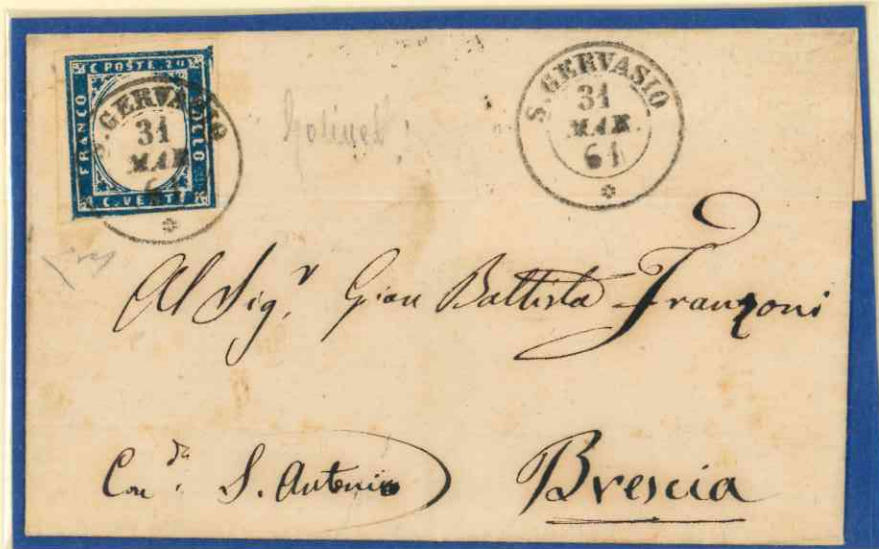 C POSTE 20
FRANCO
BOLLO
C. VENTI
S. GERVASIO
31
MAR
61
S. GERVASIO
31
MAR.
61
Al Sig.r Gian Battista Franzoni
Con.da S. Antonio
Brescia